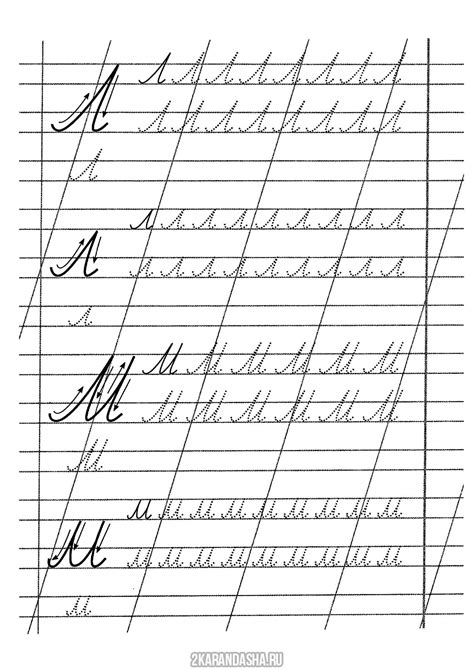 Л Л Л Л Л Л Л Л
Л Л Л Л Л Л Л Л Л
Л
л л л л л л л л л
л л л л л л л л л л
л
М М М М М М
М М М М М М М
М
м м м м м м м м м
м м м м м м м м м м
м
2KARANDASHA.RU